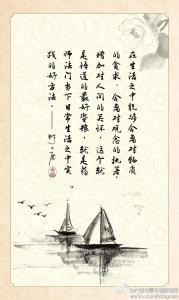 在生活之中能够舍离对物质
的贪求，舍离对观念的执著，
增加对人间的关怀，这个就
是悟道的最好资粮，就是药
师法门当下日常生活之中实
践的好方法。——